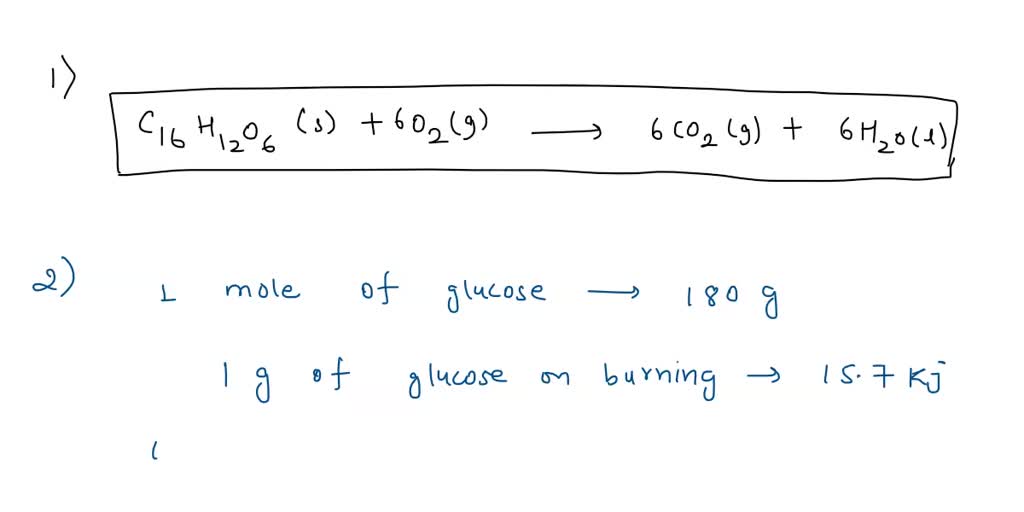 1)
C₁₆H₁₂O₆ (s) + 6O₂(g) ⟶ 6CO₂(g) + 6H₂O(l)
2) 1 mole of glucose ⟶ 180 g
1 g of glucose on burning → 15.7 KJ
(